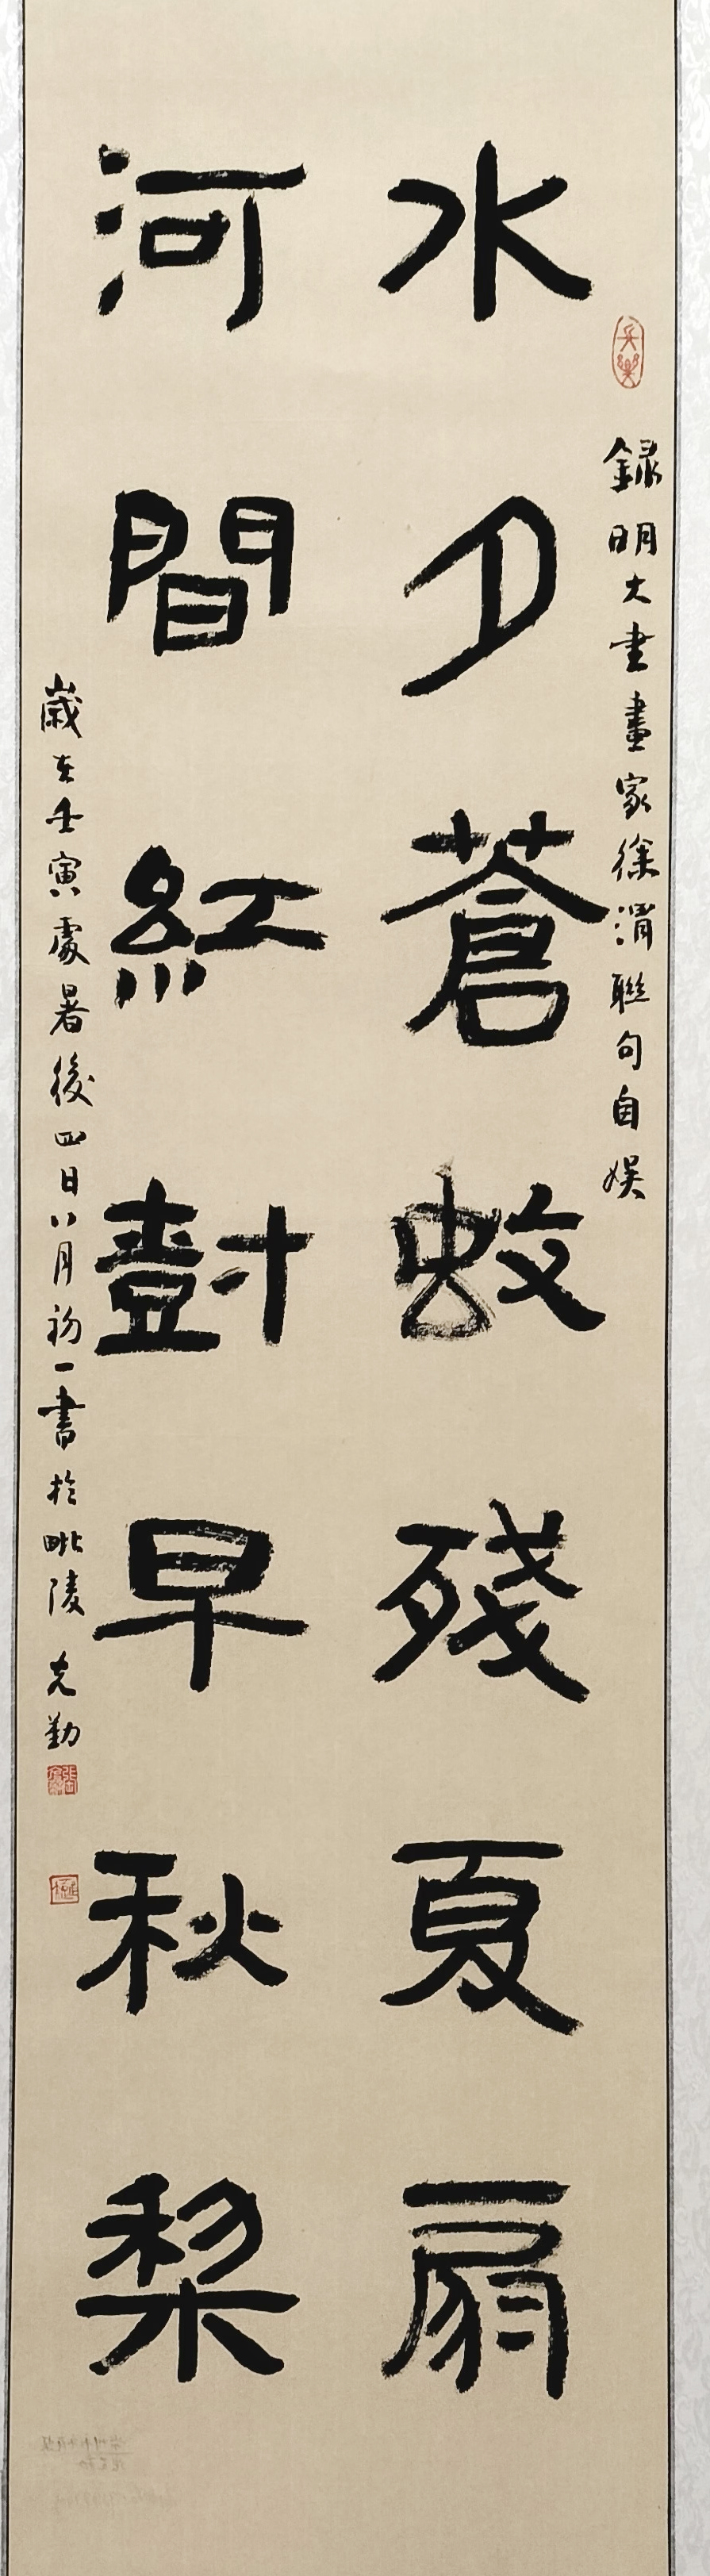 録明大書畫家徐渭聯句自娱
水夕蒼蚊殘夏扇
河間紅尌早秋梨
歲在壬寅處暑後四日八月初一書於毗陵克勤